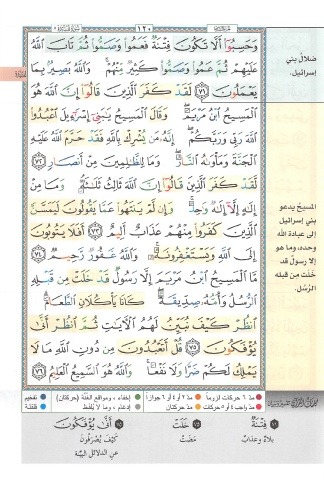 سورة المائدة
١٢٠
الجزء السادس
وَحَسِبُوٓا۟ أَلَّا تَكُونَ فِتْنَةٌ فَعَمُوا۟ وَصَمُّوا۟ ثُمَّ تَابَ ٱللَّهُ
عَلَيْهِمْ ثُمَّ عَمُوا۟ وَصَمُّوا۟ كَثِيرٌ مِّنْهُمْ ۚ وَٱللَّهُ بَصِيرٌۢ بِمَا
يَعْمَلُونَ ٧١ لَقَدْ كَفَرَ ٱلَّذِينَ قَالُوٓا۟ إِنَّ ٱللَّهَ هُوَ
ٱلْمَسِيحُ ٱبْنُ مَرْيَمَ ۖ وَقَالَ ٱلْمَسِيحُ يَـٰبَنِىٓ إِسْرَٰٓءِيلَ ٱعْبُدُوا۟
ٱللَّهَ رَبِّى وَرَبَّكُمْ ۖ إِنَّهُۥ مَن يُشْرِكْ بِٱللَّهِ فَقَدْ حَرَّمَ ٱللَّهُ عَلَيْهِ
ٱلْجَنَّةَ وَمَأْوَىٰهُ ٱلنَّارُ ۖ وَمَا لِلظَّـٰلِمِينَ مِنْ أَنصَارٍ ٧٢
لَّقَدْ كَفَرَ ٱلَّذِينَ قَالُوٓا۟ إِنَّ ٱللَّهَ ثَالِثُ ثَلَـٰثَةٍ ۘ وَمَا مِنْ
إِلَـٰهٍ إِلَّآ إِلَـٰهٌ وَٰحِدٌ ۚ وَإِن لَّمْ يَنتَهُوا۟ عَمَّا يَقُولُونَ لَيَمَسَّنَّ
ٱلَّذِينَ كَفَرُوا۟ مِنْهُمْ عَذَابٌ أَلِيمٌ ٧٣ أَفَلَا يَتُوبُونَ
إِلَى ٱللَّهِ وَيَسْتَغْفِرُونَهُۥ ۚ وَٱللَّهُ غَفُورٌ رَّحِيمٌ ٧٤
مَّا ٱلْمَسِيحُ ٱبْنُ مَرْيَمَ إِلَّا رَسُولٌ قَدْ خَلَتْ مِن قَبْلِهِ
ٱلرُّسُلُ وَأُمُّهُۥ صِدِّيقَةٌ ۖ كَانَا يَأْكُلَانِ ٱلطَّعَامَ ۗ
ٱنظُرْ كَيْفَ نُبَيِّنُ لَهُمُ ٱلْـَٔايَـٰتِ ثُمَّ ٱنظُرْ أَنَّىٰ
يُؤْفَكُونَ ٧٥ قُلْ أَتَعْبُدُونَ مِن دُونِ ٱللَّهِ مَا لَا
يَمْلِكُ لَكُمْ ضَرًّا وَلَا نَفْعًا ۚ وَٱللَّهُ هُوَ ٱلسَّمِيعُ ٱلْعَلِيمُ ٧٦
ضلالُ بني
إسرائيل.
المسيحُ يدعو
بني إسرائيل
إلى عبادة الله
وحده، وما هو
إلا رسولٌ قد
خلت من قبله
الرُّسُل.
مدّ ٦ حركات لزوماً
مدّ ٢ أو ٤ أو ٦ جوازاً
إخفاء، ومواقع الغُنَّة (حركتان)
تفخيم
مدّ واجب ٤ أو ٥ حركات
مدّ حركتان
إدغام، وما لا يُلفَظ
قلقلة
٧١ فِتْنَةٌ
بلاءٌ وعذابٌ
٧٥ خَلَتْ
مَضَتْ
٧٥ أَنَّىٰ يُؤْفَكُونَ
كَيْفَ يُصْرَفُونَ
عن الدلائل البيّنة